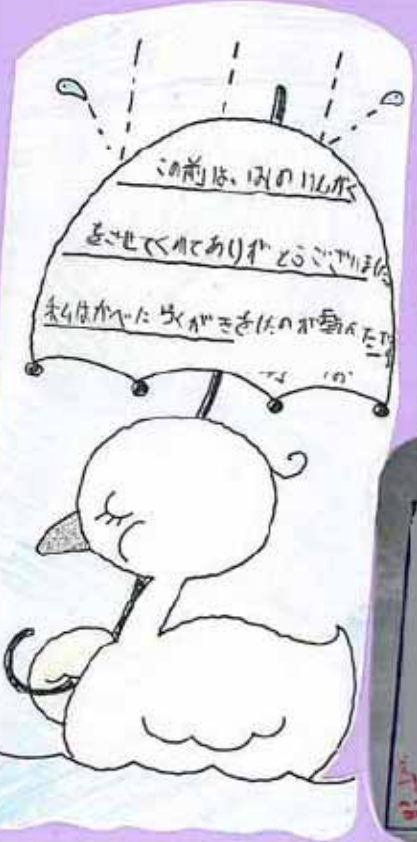 この前は、はしのけんがく
をさせてくれてありがとうございました
私はかべにらくがきをしたのが